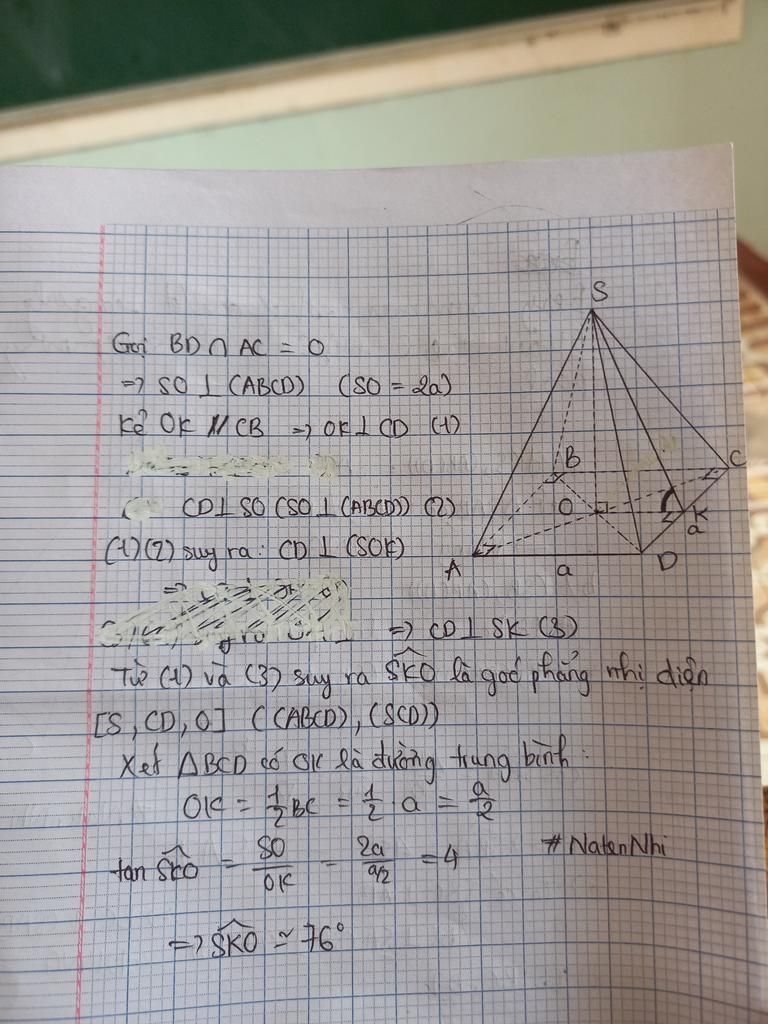 Gọi BD ∩ AC = O
=> SO ⊥ (ABCD) (SO = 2a)
Kẻ OK // CB => OK ⊥ CD (1)
CD ⊥ SO (SO ⊥ (ABCD)) (2)
(1)(2) suy ra: CD ⊥ (SOK)
=>
=> CD ⊥ SK (3)
Từ (1) và (3) suy ra \widehat{SKO} là góc phẳng nhị diện
[S, CD, O] ((ABCD), (SCD))
Xét ΔBCD có OK là đường trung bình:
OK = \frac{1}{2}BC = \frac{1}{2} . a = \frac{a}{2}
tan \widehat{SKO} = \frac{SO}{OK} = \frac{2a}{a/2} = 4
#NatenNhi
=> \widehat{SKO} ≃ 76°
S
B
C
O
K
a
A
a
D